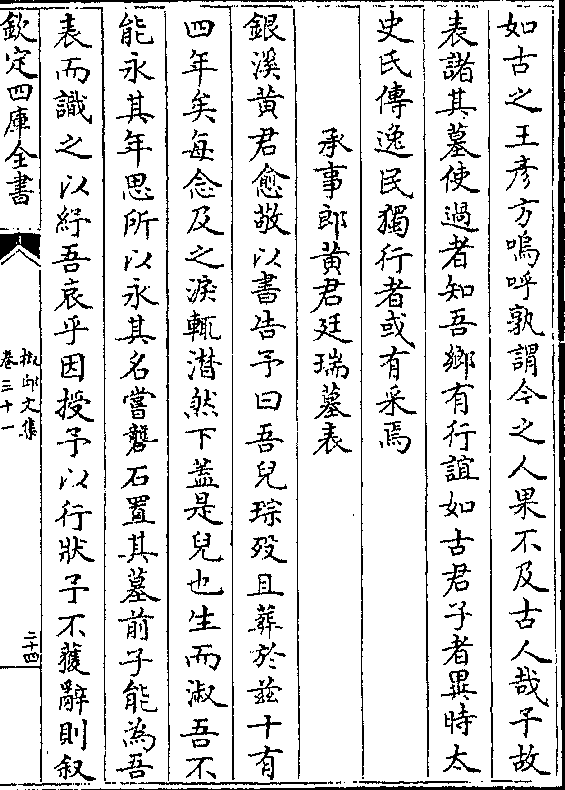 如古之王彥方嗚呼孰謂今之人果不及古人哉予故
表諸其墓使過者知吾鄉有行誼如古君子者異時太
史氏傳逸民獨行者或有采焉
承事郎黄君廷瑞墓表
銀溪黄君愈敬以書告予曰吾兒琮殁且葬於兹十有
四年矣每念及之淚輒潸然下蓋是兒也生而淑吾不
能永其年思所以永其名嘗礱石置其墓前子能為吾
表而識之以紓吾哀乎因授予以行狀予不獲辭則叙
欽定四庫全書
椒邱文集
卷三十一
二十四